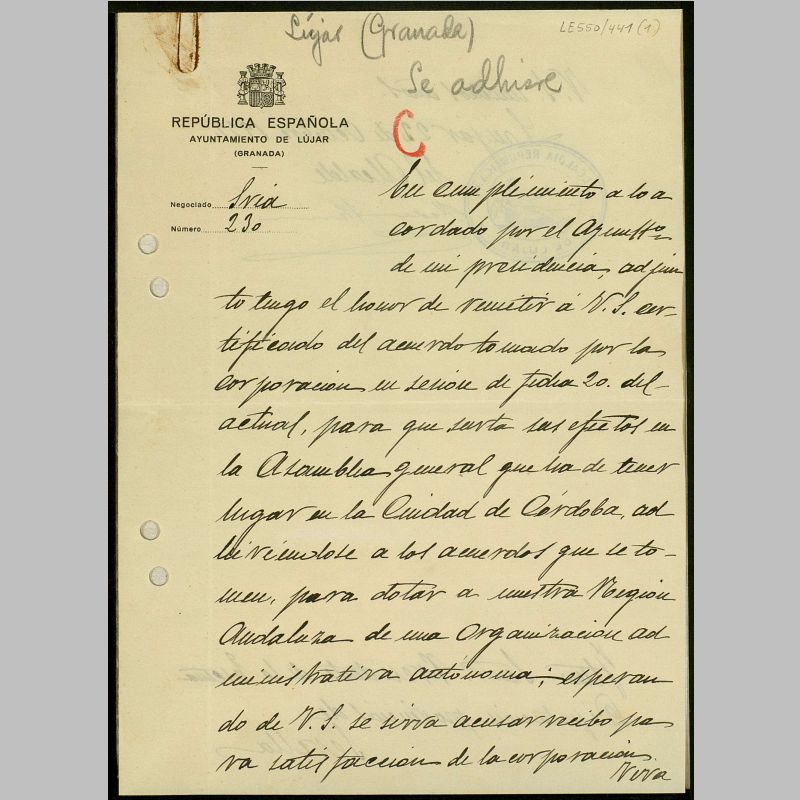 Lújar (Granada)
LE550/441 (1)
Se adhiere
REPÚBLICA ESPAÑOLA
AYUNTAMIENTO DE LÚJAR
(GRANADA)
C
Negociado Sria
Número 230
En cumplimiento a lo a
cordado por el Ayuntto
de mi presidencia, adjun
to tengo el honor de remitir á V.S. cer-
tificado del acuerdo tomado por la
corporacion en sesión de fecha 20. del
actual, para que surta sus efectos en
la Asamblea general que ha de tener
lugar en la Ciudad de Córdoba, ad
hiriéndose a los acuerdos que se to-
men, para dotar a nuestra Region
Andaluza de una Organización ad
ministrativa autónoma; esperan
do de V.S. se sirva acusar recibo pa
ra satisfaccion de la corporacion.
Viva